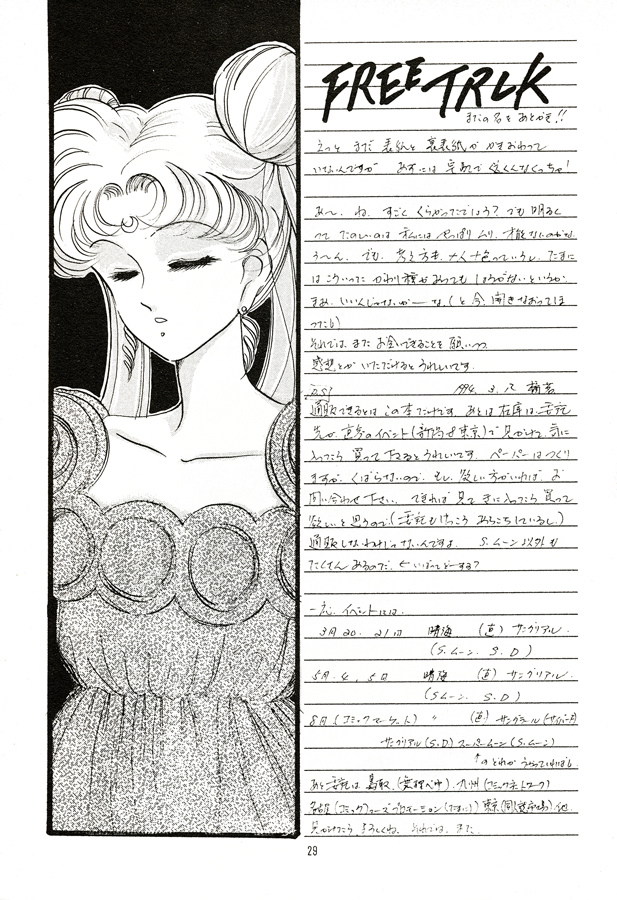 FREE TALK
またの名を あとがき!!
えっと まだ 表紙と 裏表紙が かきおわって
いないんですが あすには 宅配で 送くんなくっちゃ!
あ〜、ね、すごく くらかったでしょう? でも 明るく
って たのしいのは 私には やっぱり ムリ。才能ないのかな
う〜ん。でも、考え方も 十人十色っていうし、たまに
は こういった かわり種が あっても しょうがないというか
まあ、いいんじゃないか—な、(と今、開きなおってし
まった)
それでは、また お会いできることを 願いつつ
感想とか いただけると うれしいです。
1994. 3.
P.S.
通販できるのは この本だけです。あとは 在庫は 委託
先か 直参の イベント(新潟や東京)で 見かけて、気に
入ったら 買って下さると うれしいです。ペーパーは つくり
ますが、くばらないので、もし 欲しい方がいれば、お
問い合わせ 下さい。できれば 見て 気に入ったら 買って
欲しいと 思うので、(委託も けっこう あちこちしているし)
通販しないわけじゃないんですよ。S.ムーン以外も
たくさん あるのだ。← いばって どーする?
一応、イベントには、
3月20.21日 晴海 (直) サングリアル.
(S.ムーン. S.D)
5月.4.5日 晴海 (直) サングリアル.
(S.ムーン. S.D)
8月(コミックマーケット) 〃 (直)
サングリアル(S.D) スーパームーン(S.ムーン)
↑のどれか うかっていればね
あと 委託は 鳥取、九州(コミックネットワーク)
名古屋(コミック) 東京 他
見かけたら よろしくね。それでは、また.
29